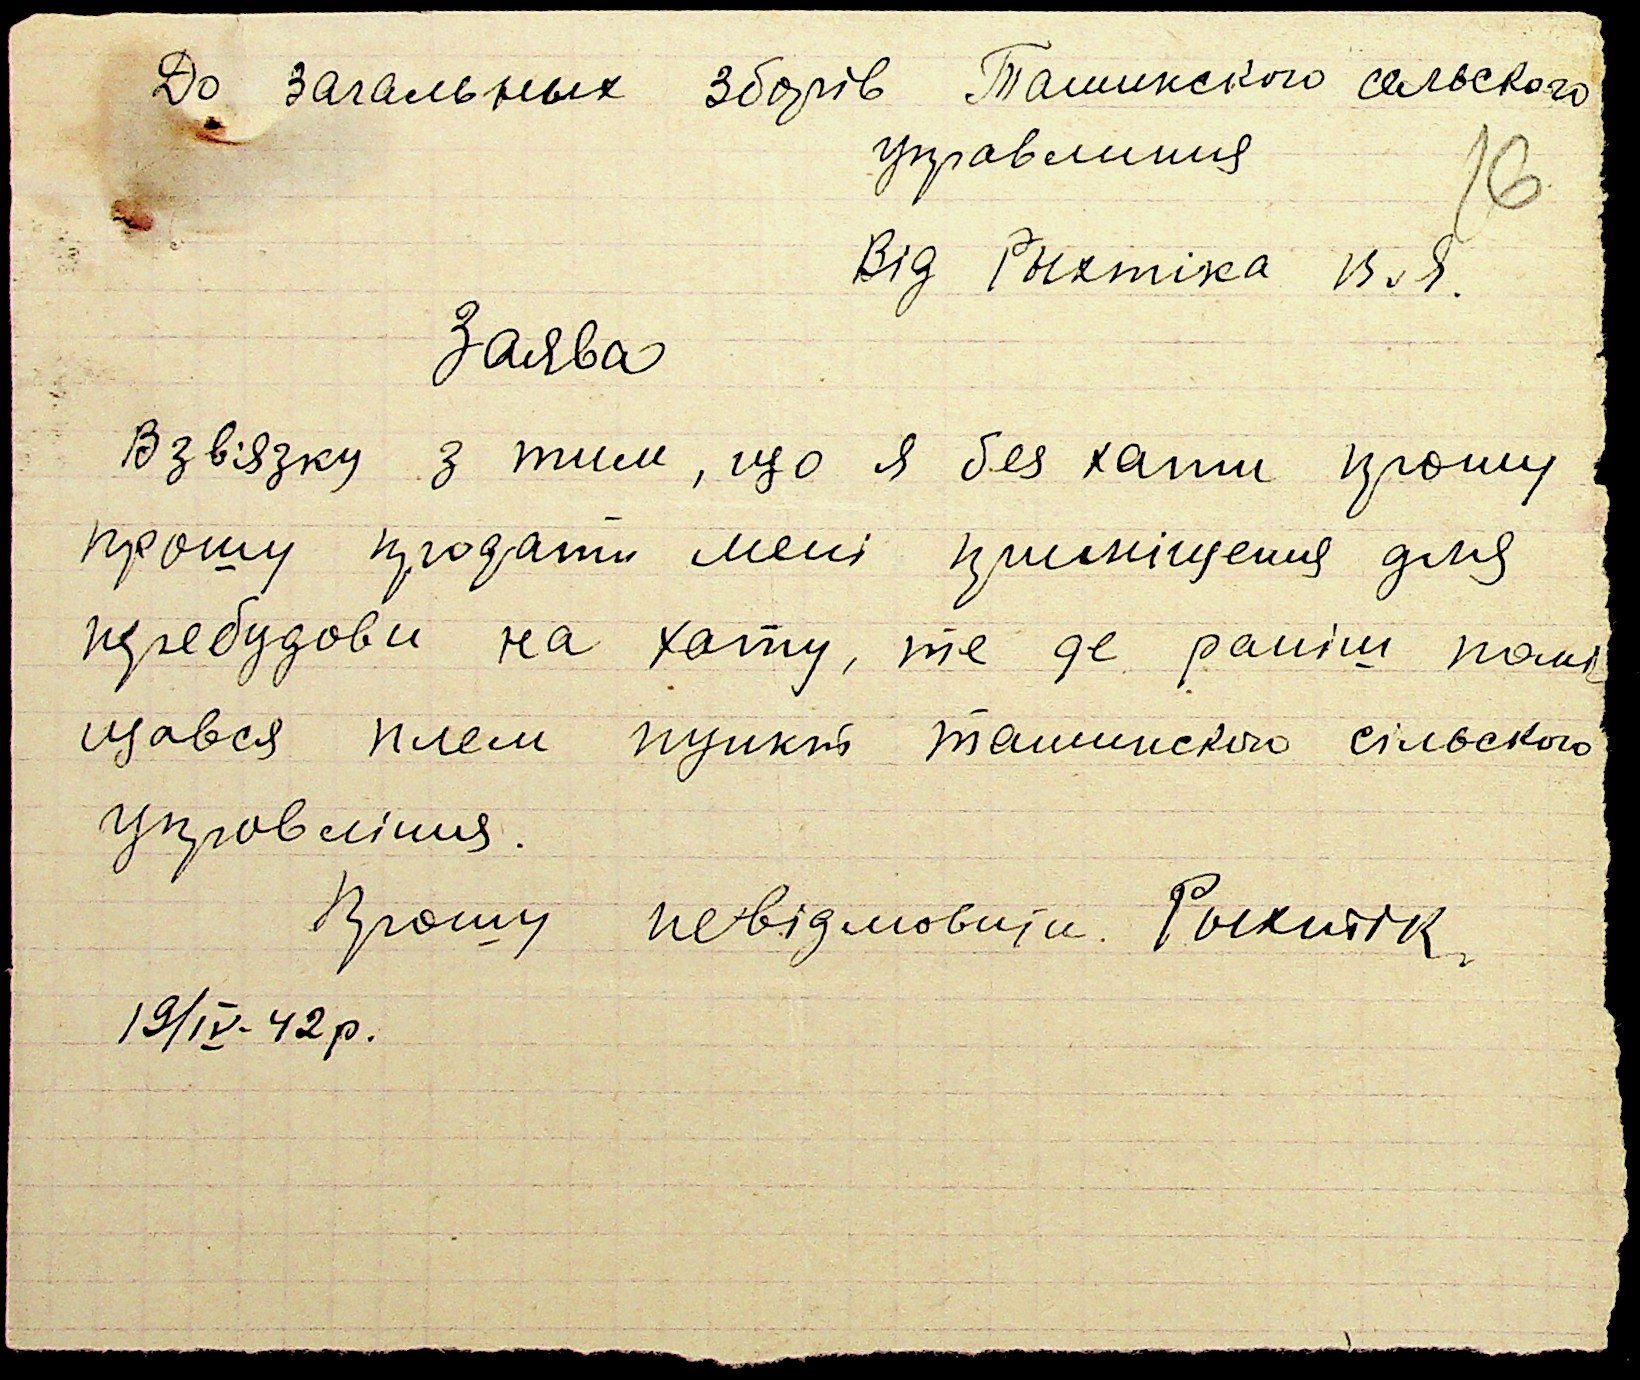 До загальных зборів Ташинского сельского
управлиния
16
Від Рыхтіка В. Я.
Заява
Взвіязку з тим, що я без хати прошу
прошу продати мені приміщения для
пребудови на хату, те де раніш помі
щався плем пункт ташинского сільского
управлиіня.
Прошу невідмовити. Рыхтік.
19/IV-42р.